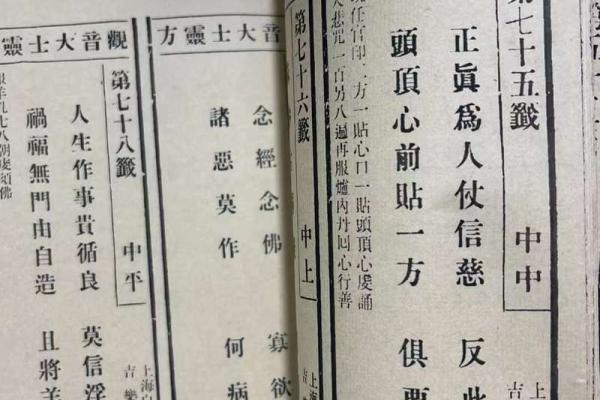 第七十五籤 中中
正眞爲人仗信慈 反此
頭頂心前貼一方 俱要
任官印一方一貼心口一貼頭頂心虔誦
大悲咒一百另八遍再服爐內丹回心行善
第七十六籤 中上
音大士靈方
念經念佛 寡欲
諸惡莫作 何病
觀音大士靈
第七十八籤 中平
人生作事貴循良 莫信浮
禍福無門由自造 且將羊
上海
吉樂